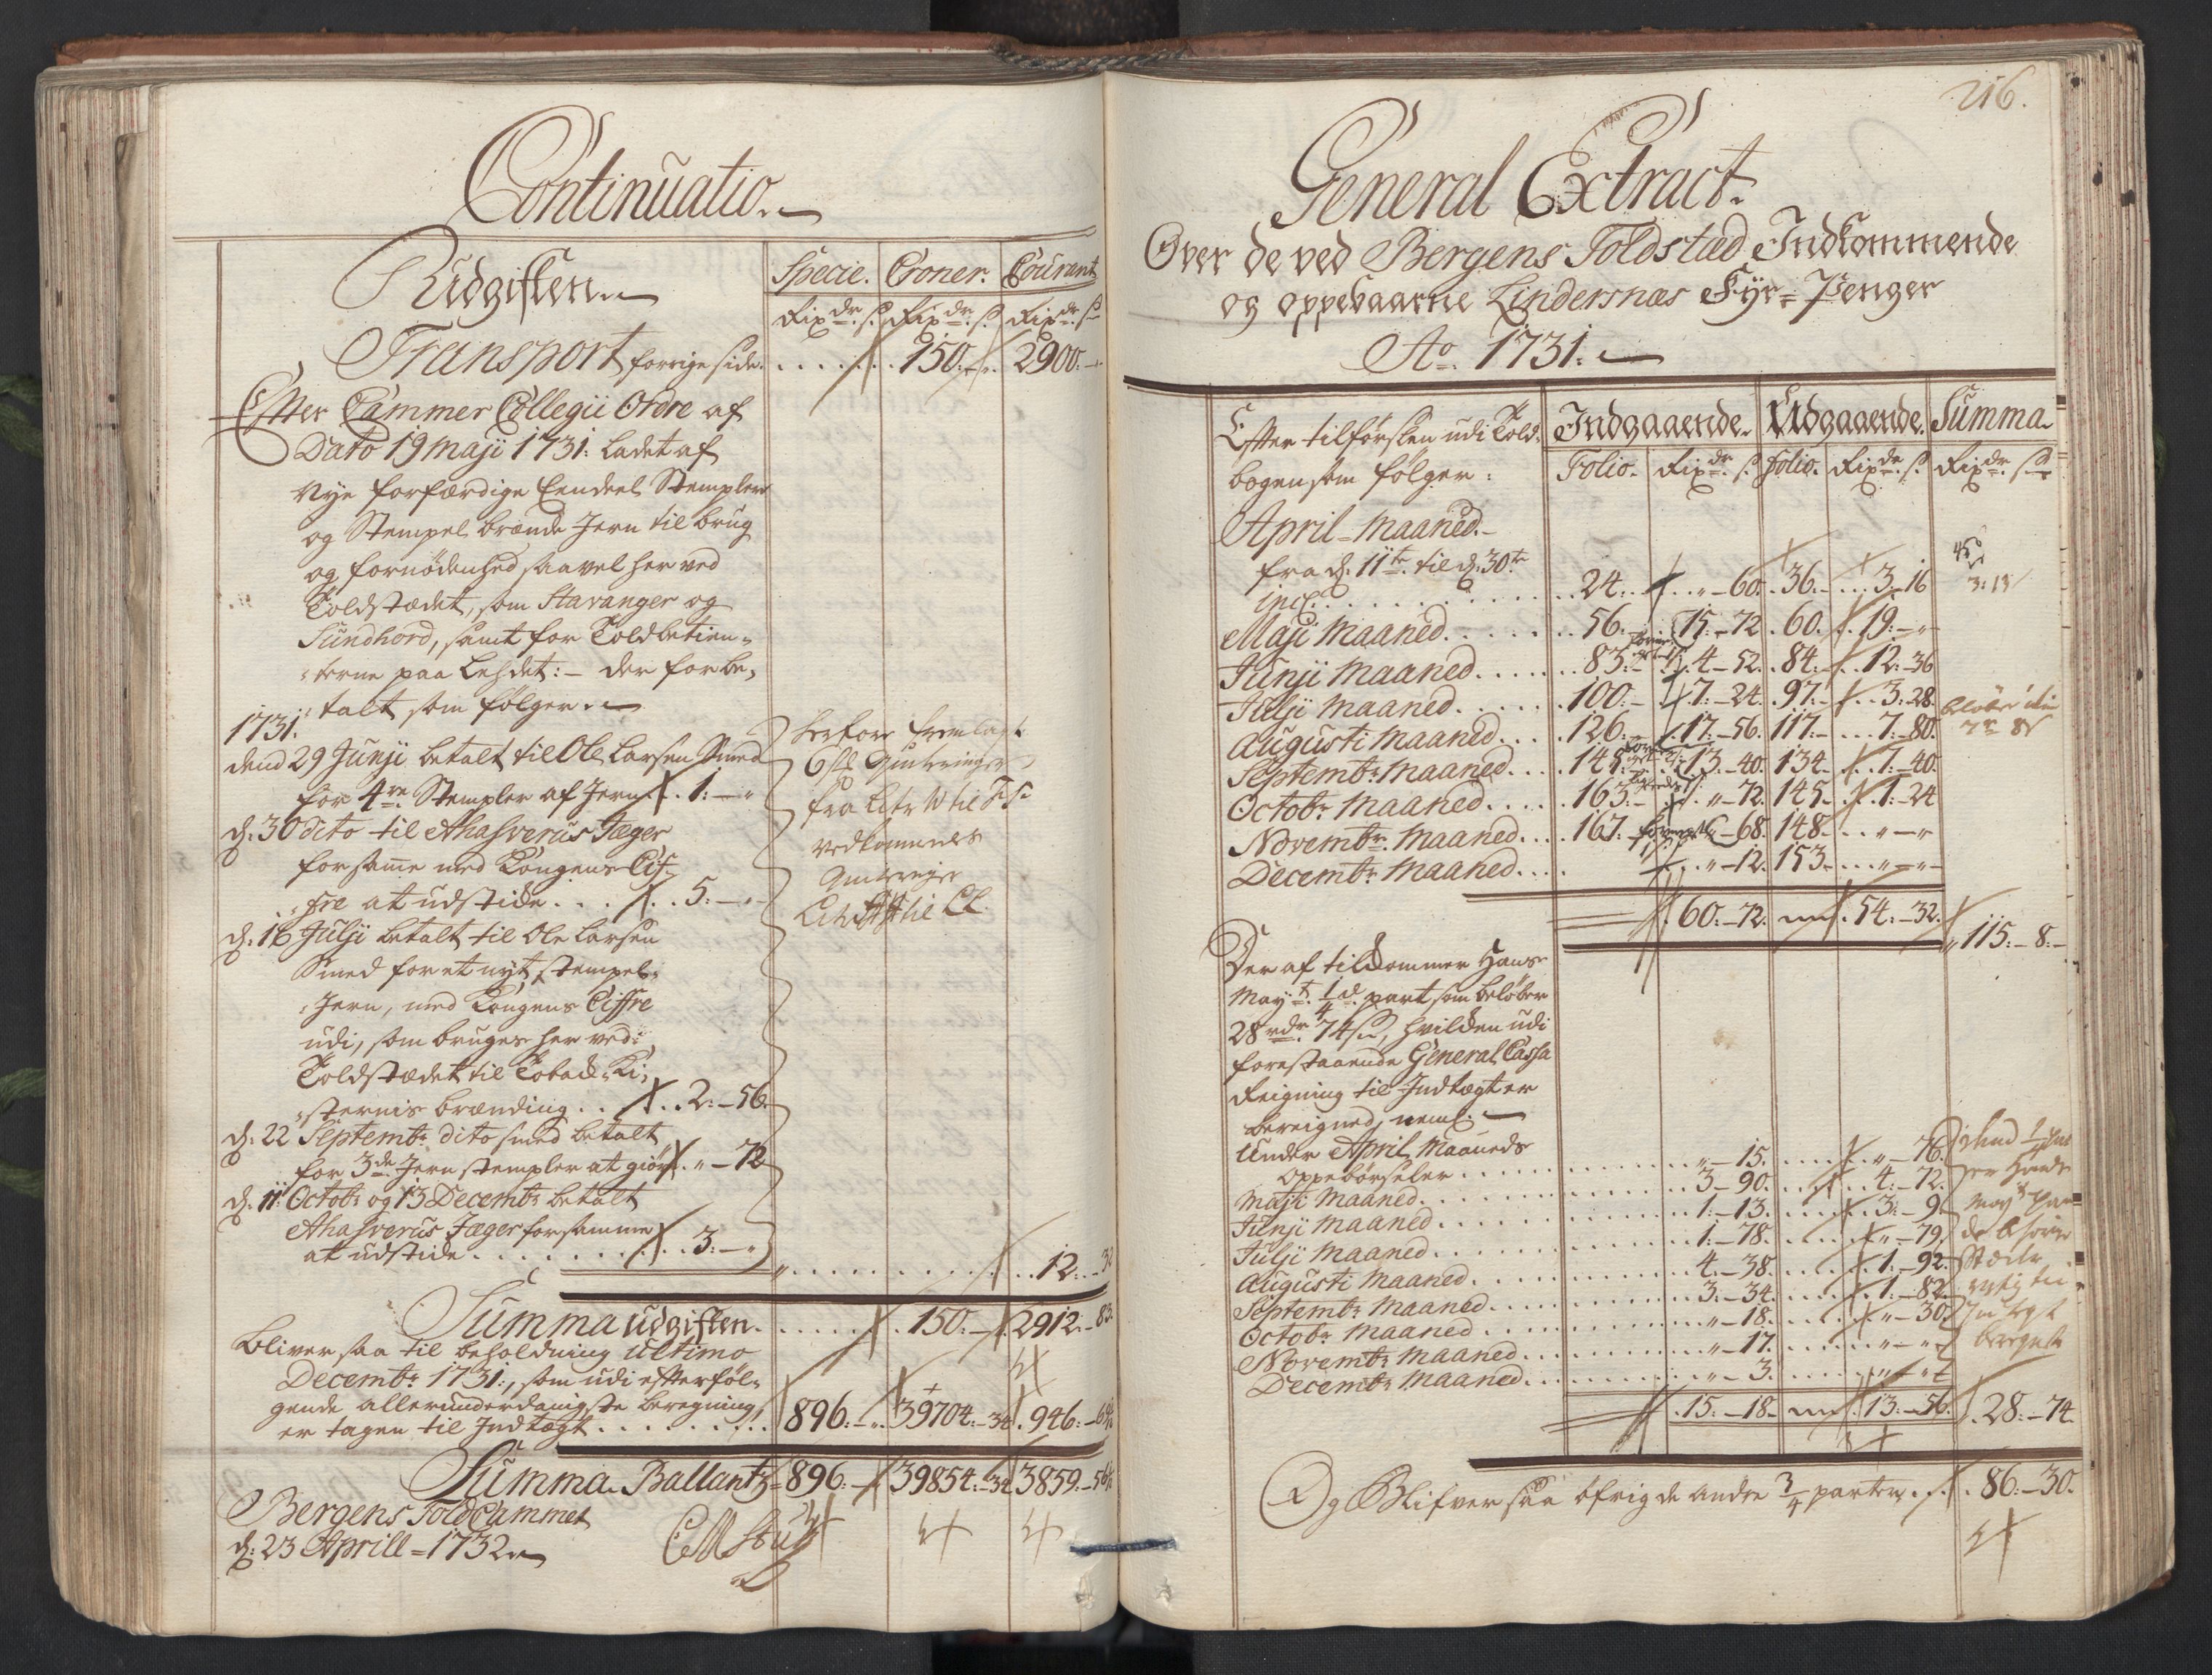 Continuatio.
Udgiften
Specie. Croner. Courant
Rixdr. s. Rixdr. s. Rixdr. s
Transport forrige side . . . . . . 150.-„. 2900.-
Efter Cammer Collegii Ordre af
Dato 19 Maji 1731: ladet af
Nye forfærdige Eendeel Stempler
og Stempel brænde Jern til brug
og fornødenhed saavel her ved
Toldstædet, som Stavanger og
Sundhord, samt for Toldbetien-
terne paa Lehdet:- der for be-
talt som følger.
1731.
dend 29 Junji betalt til Ole Larsen Smed
for 4re Stempler af Jern . 1:-„
d. 30 dito til Ahasverus Jæger
for samme med Kongens Cif-
fre at udstide . . . 5:-„
d. 16 Julji betalt til Ole Larsen
Smed for et nyt stempel-
Jern, med Kongens Ciffre
udi, som bruges her ved
Toldstædet til Toback Ki-
sternis brænding . . . 2:-56.
d. 22 Septembr dito smed betalt
for 3de Jern stempler at giøre . „-72
d. 11 Octobr og 13 Decembr betalt
Ahasverus Jæger for samme
at udstide . . . . . . . 3:-„
Herfore fremlagt
6 st Qviteringer
fra Litr W til
vedkommendes
Qvitteringer
Litr til
„ . . . . . . . . . 12.-32
Summa udgiften . . . . . . 150:- 2912.-83.
Bliver saa til beholdning ultimo
Decembr 1731:, som udi efterføl-
gende allerunderdanigste beregning
er tagen til Indtægt . . . . . . 896:-„ 39704:-34 946.-
Summa Ballantz 896:- 39854:-34 3859.-
Bergens ToldCammer
d: 23 Aprill-1732

216.
General Extract.
Over de ved Bergens Toldstæd Indkommende
og oppebaarne Lindersnæs Fyr-Penger
Ao. 1731.
Efter tilførslen udi Told-
bogen som følger:
Indgaaende. Udgaaende. Summa.
Folio. Rixdr. s. folio. Rixdr. s. Rixdr. s
April-Maaned.-
fra d. 11te til d. 30te
incl. . . . . . . 24. . „-60. 36.- . . 3.-16
Maji Maaned . . . . . 56. 15.-72. 60. . 19:-„
Junji Maaned . . . . . 83. 4-52. 84. . 12.-36
Julji Maaned . . . . . 100:- 7.-24. 97:- . . 3:28.
Augusti Maaned . . . . 126. . 17.-56. 117:- . . . 7.-80.
Septembr Maaned . . . . 145. . 13.-40. 134. . . 7.-40.
Octobr Maaned . . . . . 163:- . „-72. 145.- . 1:-24
Novembr Maaned . . . . 167. -68. 148. . . „-„
Decembr Maaned . . . . „-12. 153. . . „-„-
60.-72. 54.-32.
115.-8.-
Der af tilkommer Hans
Mayt. 1/4d part som beløber
28 rdr. 74 s, hvilken udi
forestaaende General Cassa
Reigning til Indtægt er
bereigned, neml:
Under April Maaneds
oppebørseler . . . . . . „-15. . . . „-76.
Maji Maaned . . . . . . 3-90. . . . 4.-72.
Junji Maaned . . . . . . 1.-13. . . . 3.-9.
Julji Maaned . . . . . . 1.-78. . . . „-79.
Augusti Maaned . . . . . . 4.-38. . . . 1.-92.
Septembr Maaned . . . . . . 3.-34. . . . 1.-82.
Octobr Maaned . . . . . . „-18. . . . „-30.
Novembr Maaned . . . . . . „-17. . . . „-„
Decembr Maaned . . . . . . „-3. . . . „-„
15.-18. 13.-56. 28.-74.
Og Blifver saa øfrig de andre 3/4 parter . . . 86.-30.